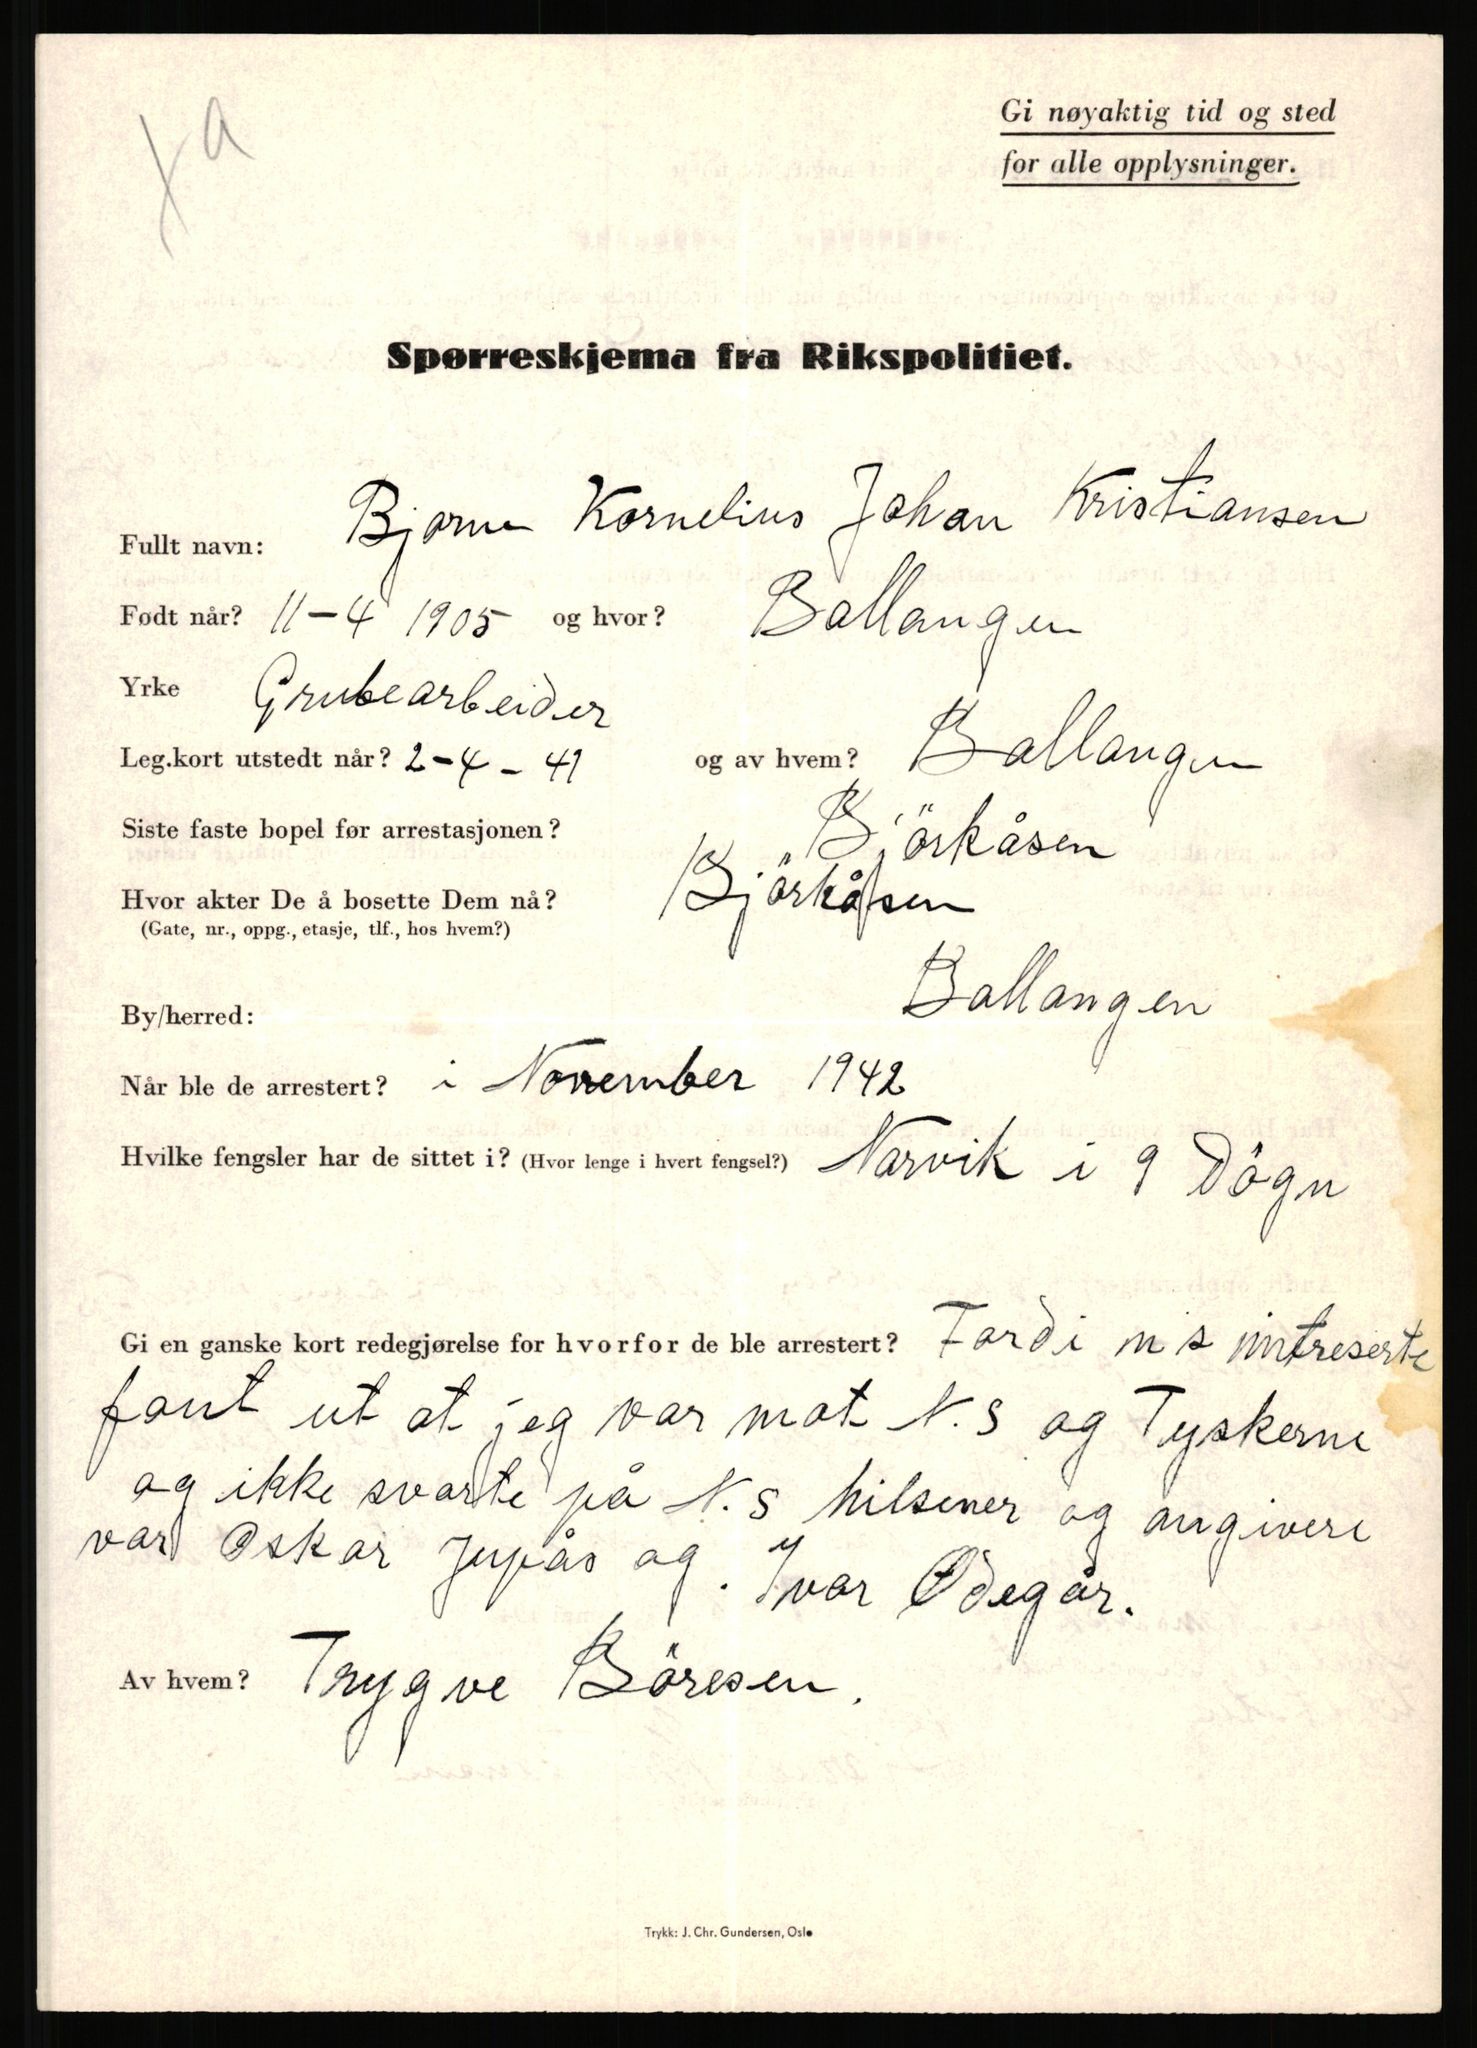 Gi nøyaktig tid og sted
for alle opplysninger.
Spørreskjema fra Rikspolitiet.
Fullt navn: Bjarne Kornelius Johan Kristiansen
Født når? 11-4 1905 og hvor? Ballangen
Yrke Grubearbeider
Leg.kort utstedt når? 2-4-41 og av hvem? Ballangen
Siste faste bopel før arrestasjonen? Björkåsen
Hvor akter De å bosette Dem nå? Björkåsen
(Gate, nr., oppg., etasje, tlf., hos hvem?)
By/herred: Ballangen
Når ble de arrestert? i November 1942
Hvilke fengsler har de sittet i? (Hvor lenge i hvert fengsel?) Narvik i 9 Dögn
Gi en ganske kort redegjørelse for hvorfor de ble arrestert? Fordi n s intreserte
fant ut at jeg var mot N.S og Tyskerne
og ikke svarte på N.S hilsener og angivere
var Oskar og Ivar Ødegår.
Av hvem? Trygve Böresen.
Trykk: J. Chr. Gundersen, Oslo